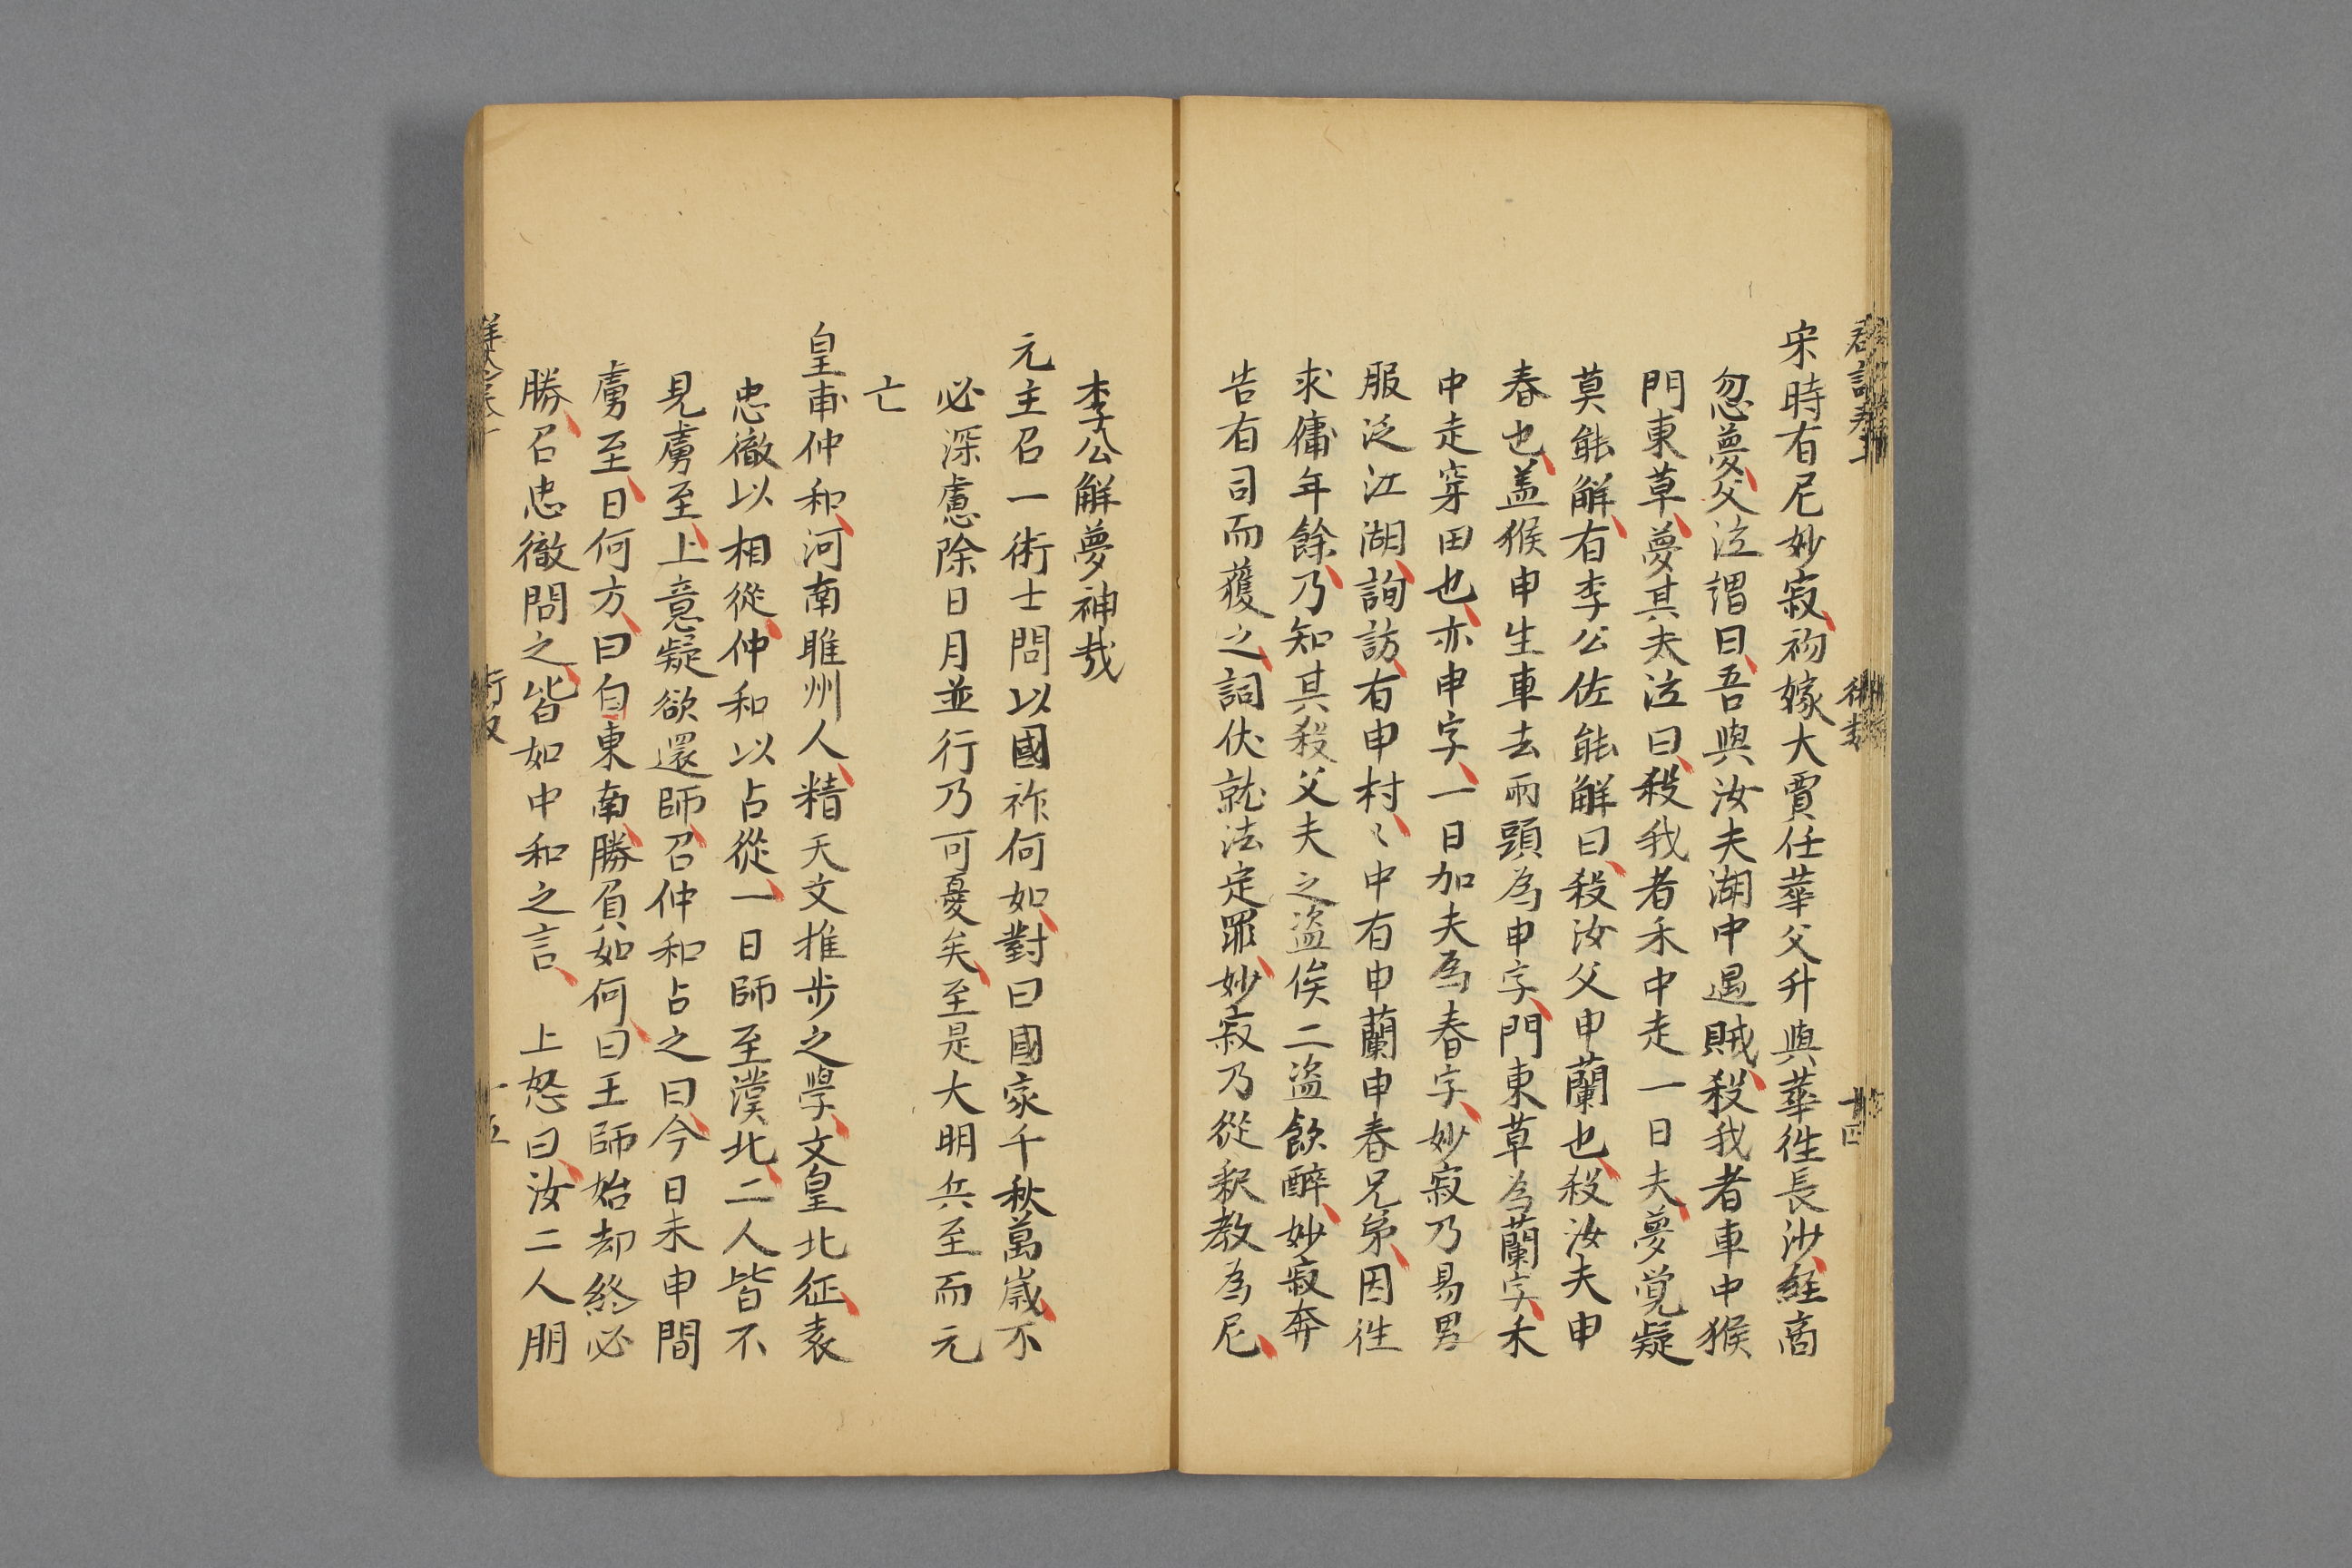 宋時有尼妙寂初嫁大賈任華父升與華徃長沙經商
忽夢父泣謂曰吾與汝夫湖中遇賊殺我者車中猴
門東草夢其夫泣曰殺我者禾中走一日夫夢覚疑
莫能解有李公佐能解曰殺汝父申蘭也殺汝夫申
春也盖猴申生車去兩頭為申字門東草為蘭字禾
中走穿田也亦申字一日加夫為春字妙寂乃易男
服泛江湖詢訪有申村〻中有申蘭申春兄弟因徃
求傭年餘乃知其殺父夫之盗俟二盗飲醉妙寂奔
告有司而獲之詞伏就法定罪妙寂乃從釈教為尼
李公解夢神㢤
元主召一術士問以國祚何如對曰國家千秋萬歳不
必深慮除日月並行乃可憂矣至是大明兵至而元
亡
皇甫仲和河南睢州人精天文推步之學文皇北征袁
忠徹以相從仲和以占從一日師至漠北二人皆不
見虜至上意疑欲還師召仲和占之曰今日未申間
虜至曰何方曰自東南勝負如何曰王師始却終必
勝召忠徹問之皆如中和之言　上怒曰汝二人朋